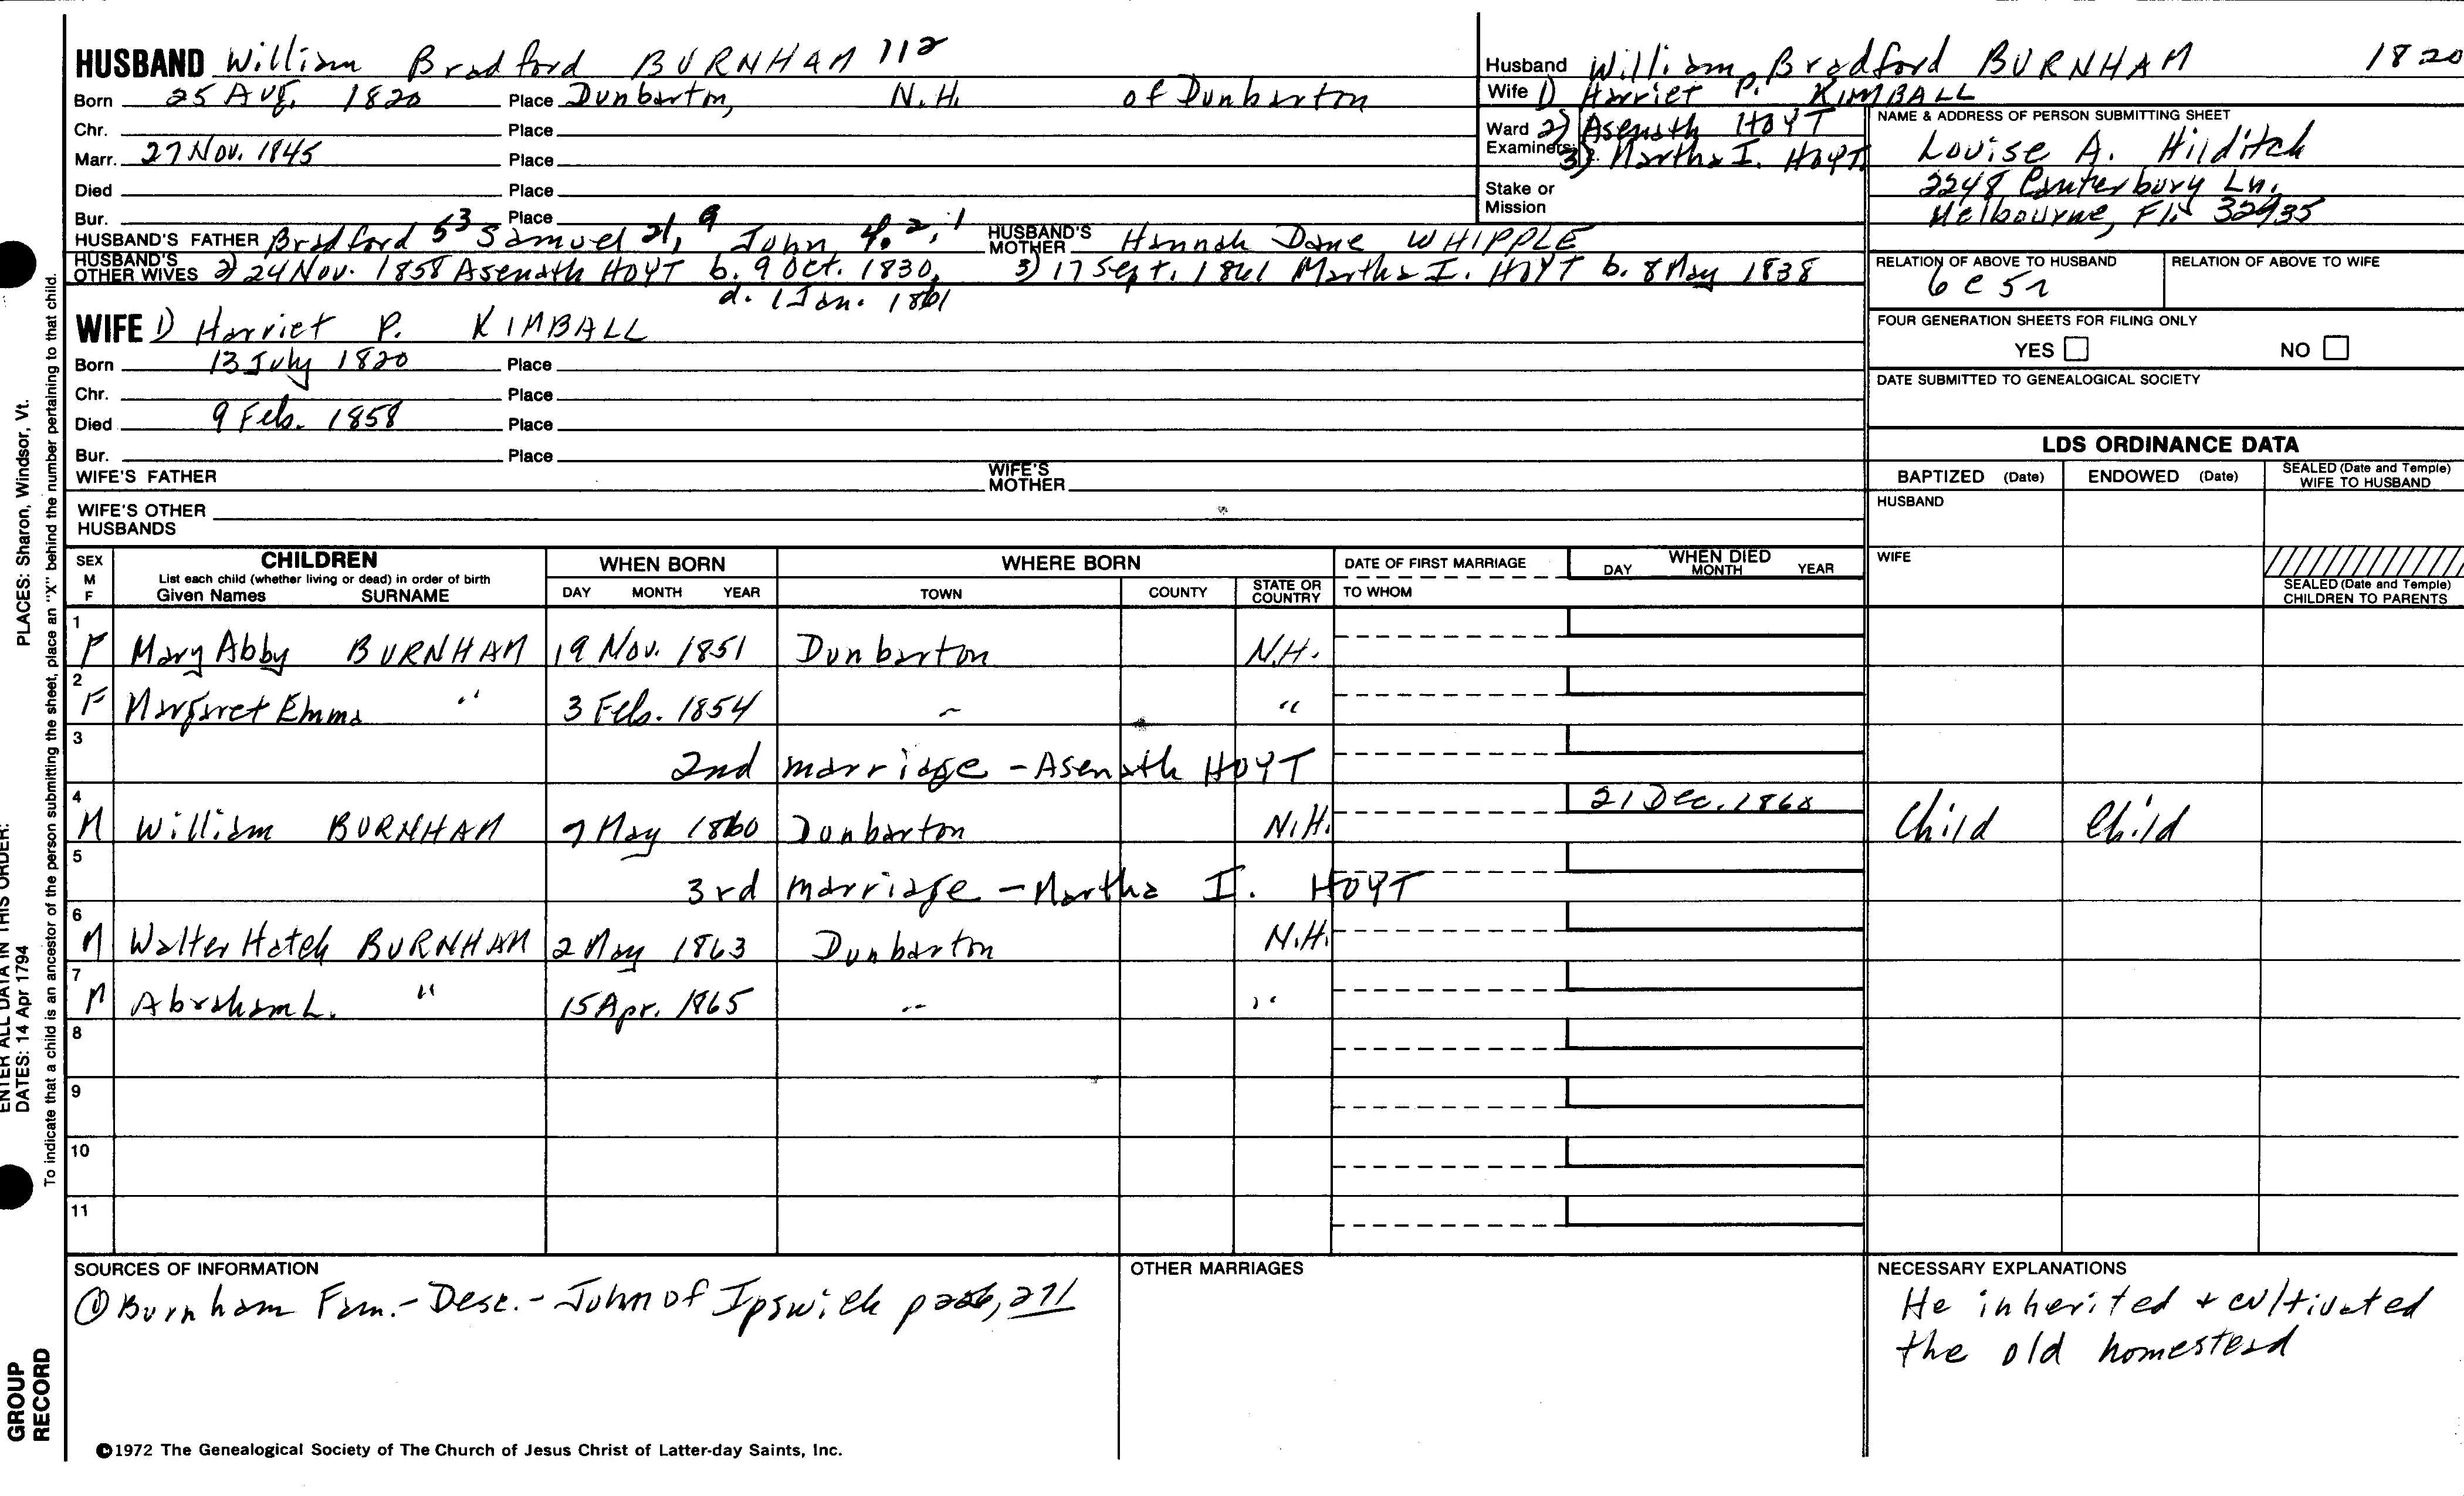 HUSBAND William Bradford BURNHAM 112
Born 25 Aug. 1820 Place Dunbarton, N.H. of Dunbarton
Chr. Place
Marr. 27 Nov. 1845 Place
Died Place
Bur. Place
HUSBAND'S FATHER Bradford 53 Samuel 21, 9 John 4, 2, 1 HUSBAND'S MOTHER Hannah Dane WHIPPLE
HUSBAND'S OTHER WIVES 2) 24 Nov. 1858 Asenath HOYT b. 9 Oct. 1830, 3) 17 Sept. 1861 Martha I. HOYT b. 8 May 1838
d. 1 Jan. 1861
WIFE 1) Harriet P. KIMBALL
Born 13 July 1820 Place
Chr. Place
Died 9 Feb. 1858 Place
Bur. Place
WIFE'S FATHER WIFE'S MOTHER
WIFE'S OTHER HUSBANDS
Husband William Bradford BURNHAM 1820
Wife 1) Harriet P. KIMBALL
Ward 2) Asenath HOYT
Examiners: 3) Martha I. HOYT
Stake or Mission
NAME & ADDRESS OF PERSON SUBMITTING SHEET
Louise A. Hilditch
2248 Canterbury Ln.
Melbourne, Fla 32935
RELATION OF ABOVE TO HUSBAND RELATION OF ABOVE TO WIFE
6 C 5 r
FOUR GENERATION SHEETS FOR FILING ONLY
YES NO
DATE SUBMITTED TO GENEALOGICAL SOCIETY
LDS ORDINANCE DATA
BAPTIZED (Date) ENDOWED (Date) SEALED (Date and Temple) WIFE TO HUSBAND
HUSBAND
WIFE
SEALED (Date and Temple) CHILDREN TO PARENTS
SEX M F CHILDREN WHEN BORN WHERE BORN DATE OF FIRST MARRIAGE WHEN DIED
List each child (whether living or dead) in order of birth
Given Names SURNAME DAY MONTH YEAR TOWN COUNTY STATE OR COUNTRY TO WHOM DAY MONTH YEAR
1 F Mary Abby BURNHAM 19 Nov. 1851 Dunbarton N.H.
2 F Margaret Emma " 3 Feb. 1854 " "
3 2nd marriage - Asenath HOYT
4 M William BURNHAM 7 May 1860 Dunbarton N.H. 21 Dec. 1860 Child Child
5 3rd marriage - Martha I. HOYT
6 M Walter Hatch BURNHAM 2 May 1863 Dunbarton N.H.
7 M Abraham L. " 15 Apr. 1865 " "
8
9
10
11
SOURCES OF INFORMATION
① Burnham Fam. - Desc. - John of Ipswich p 271
OTHER MARRIAGES
NECESSARY EXPLANATIONS
He inherited + cultivated
the old homestead
©1972 The Genealogical Society of The Church of Jesus Christ of Latter-day Saints, Inc.
GROUP
RECORD
ENTER ALL DATA IN THIS ORDER:
DATES: 14 Apr 1794 PLACES: Sharon, Windsor, Vt.
To indicate that a child is an ancestor of the person submitting the sheet, place an "X" behind the number pertaining to that child.